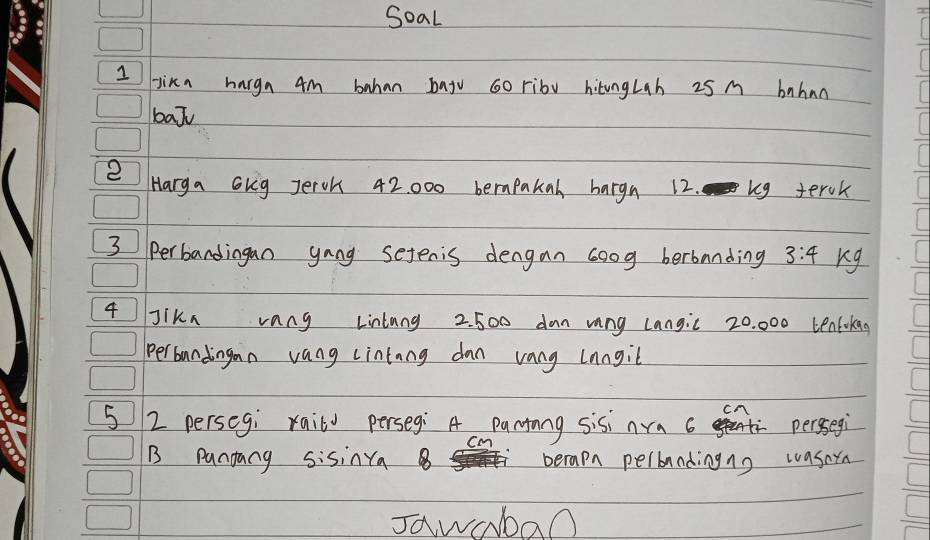 Soal
1 Jika harga 4m bahan baju 60 ribu hitunglah 25 M bahan
baju
2 Harga 6kg Jeruk 42.000 berapakah harga 12. kg jeruk
3 Perbandingan yang sejenis dengan 600g berbanding 3:4 kg
4 Jika uang Lintang 2.500 dan uang Langit 20.000 tentukan
Perbandingan uang Lintang dan uang Langit
5 2 persegi yaitu persegi A panjang sisi nya 6 cm persegi
B Panjang sisinya 8 cm berapa perbandingan luasnya
Jawaban